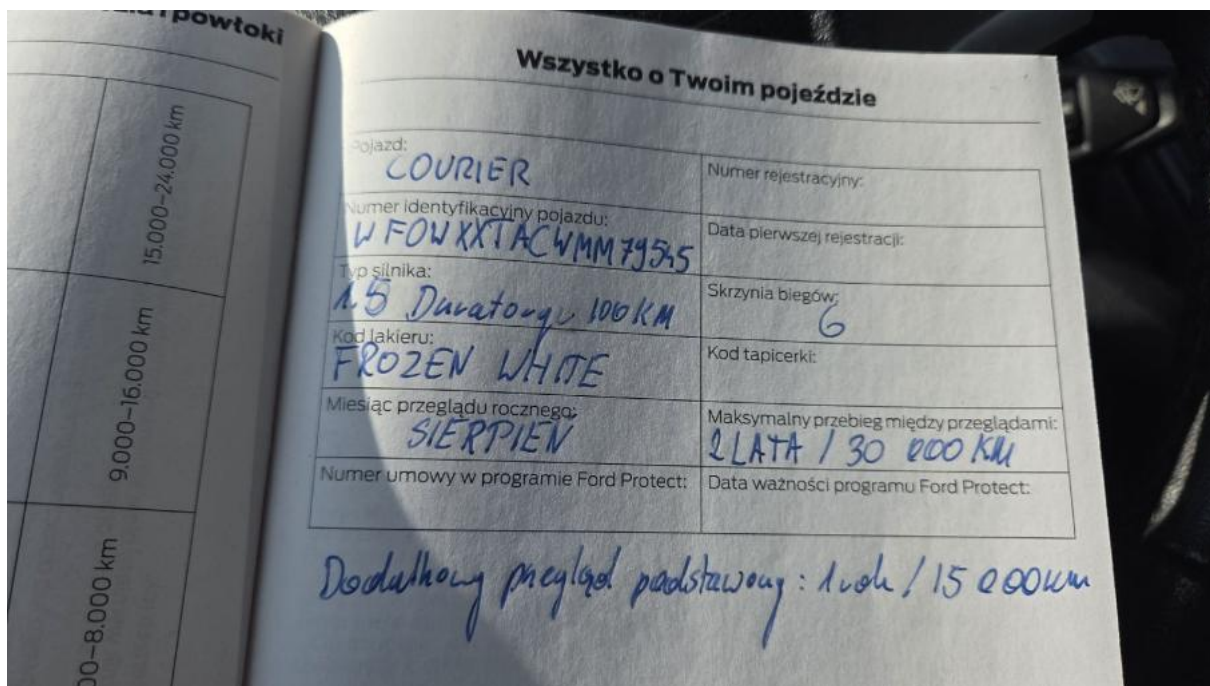 powłoki
15.000–24.000 km
9.000–16.000 km
00–8.000 km
Wszystko o Twoim pojeździe
Pojazd:
COURIER
Numer rejestracyjny:
Numer identyfikacyjny pojazdu:
WF0WXXTACWMM79545
Data pierwszej rejestracji:
Typ silnika:
1.5 Duratorq 100 KM
Skrzynia biegów:
6
Kod lakieru:
FROZEN WHITE
Kod tapicerki:
Miesiąc przeglądu rocznego:
SIERPIEŃ
Maksymalny przebieg między przeglądami:
2 LATA / 30 000 KM
Numer umowy w programie Ford Protect:
Data ważności programu Ford Protect:
Dodatkowy przegląd podstawowy: 1 rok / 15 000 km